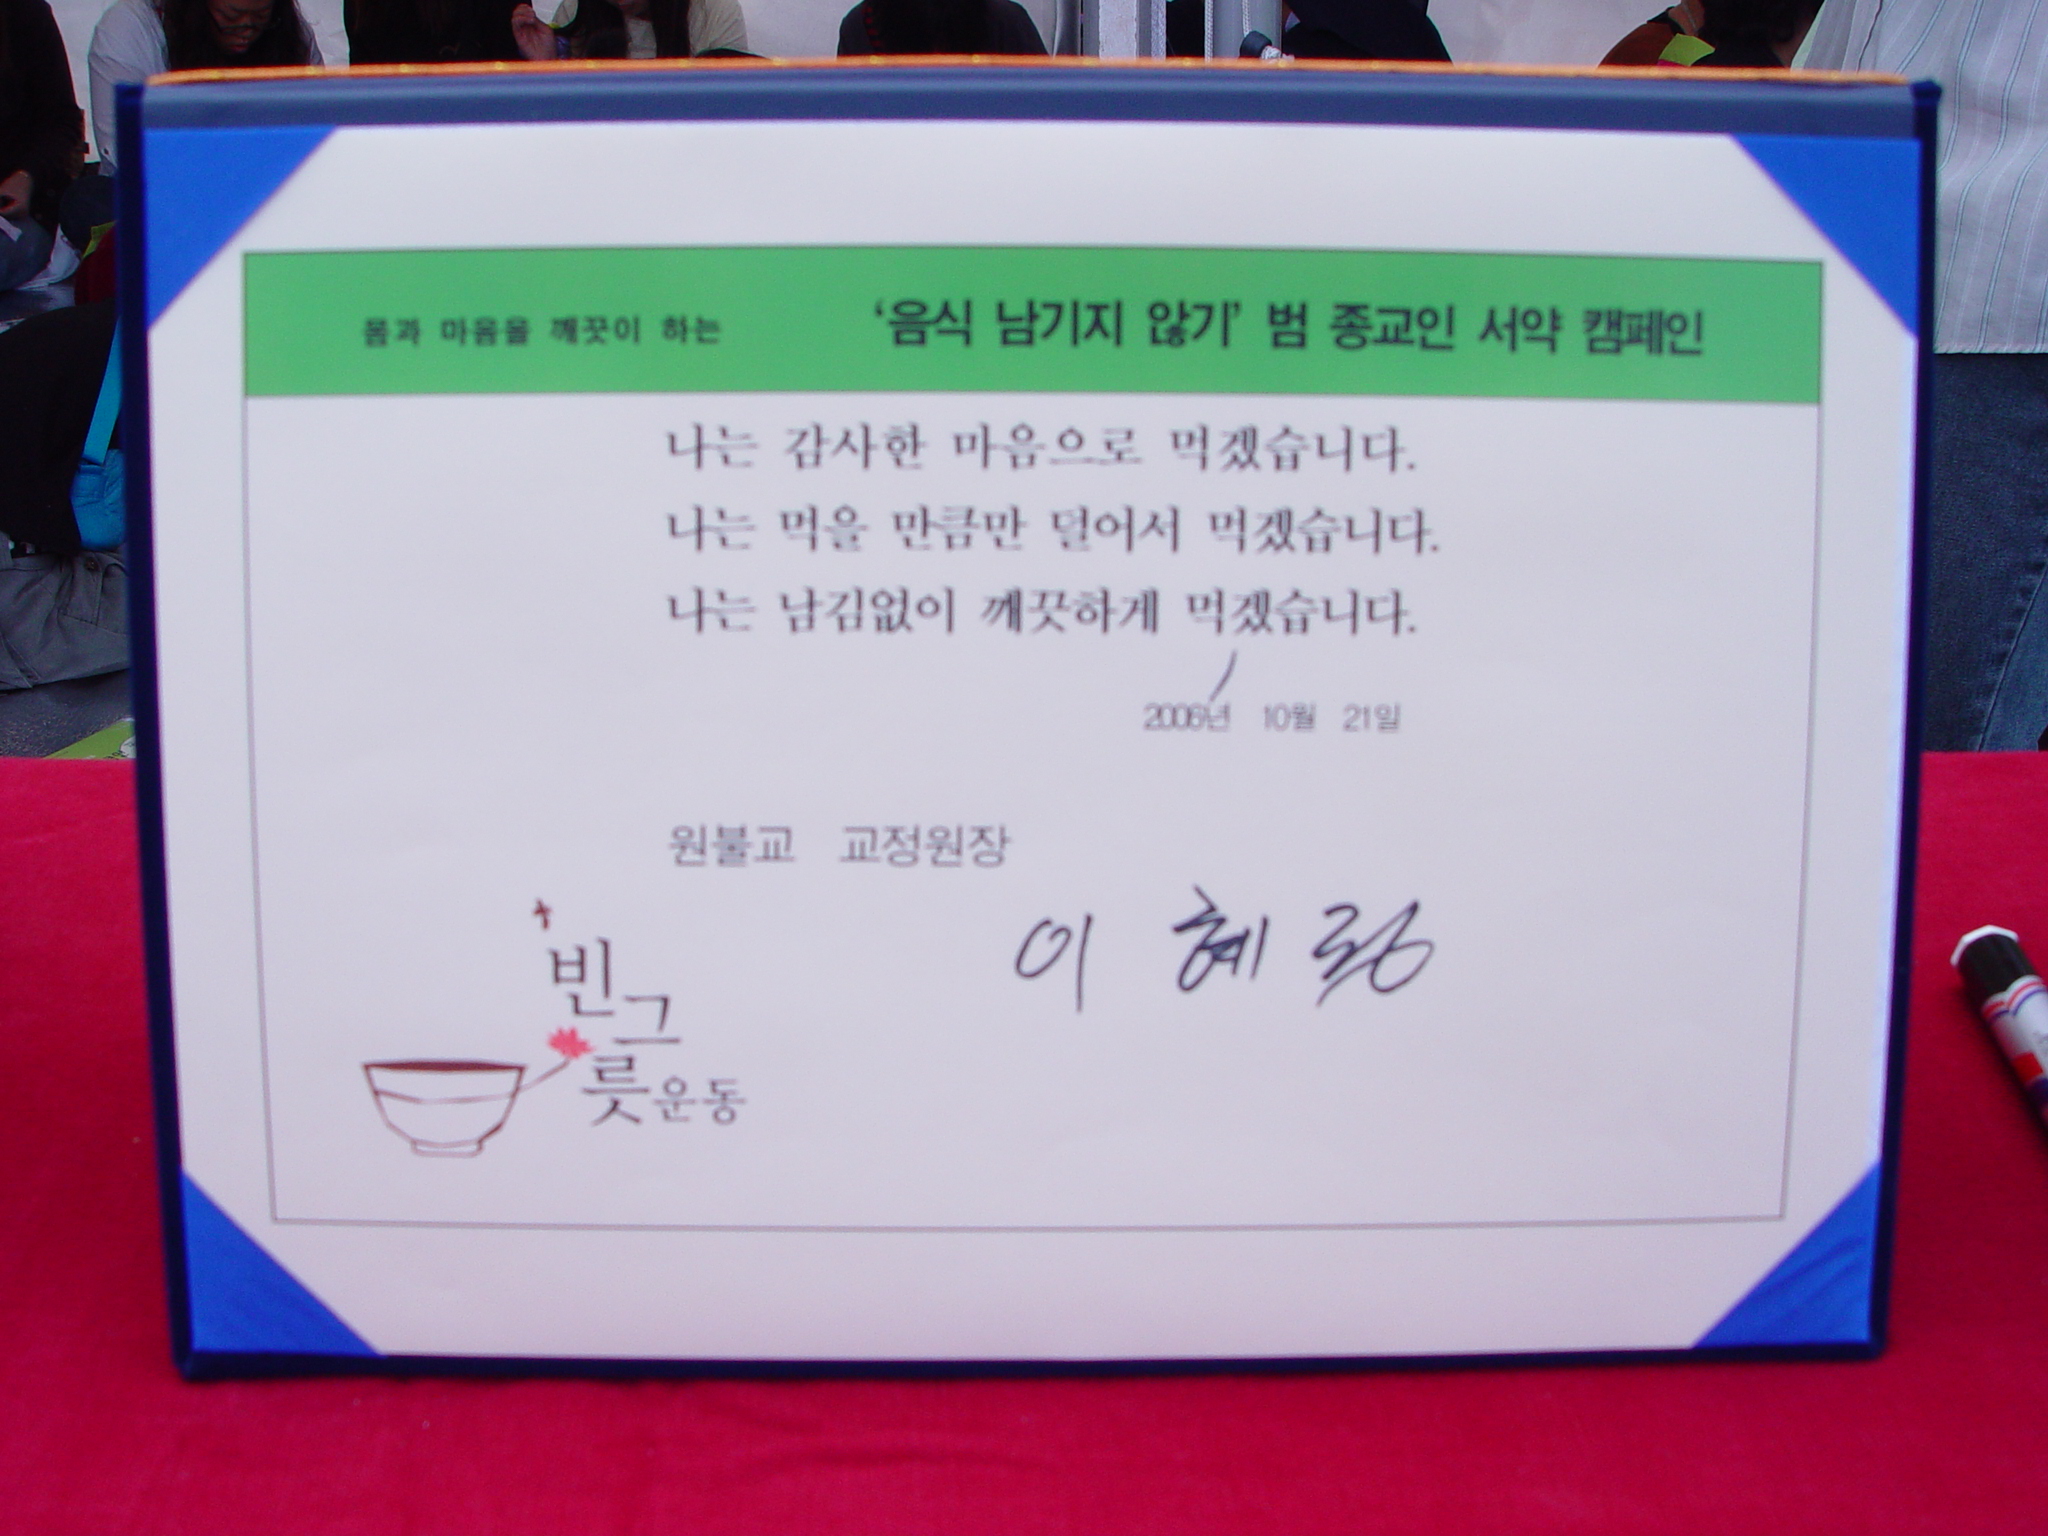 몸과 마음을 깨끗이 하는 '음식 남기지 않기' 범 종교인 서약 캠페인
나는 감사한 마음으로 먹겠습니다.
나는 먹을 만큼만 덜어서 먹겠습니다.
나는 남김없이 깨끗하게 먹겠습니다.
2006년 10월 21일
원불교 교정원장
이 혜 정
빈그릇운동